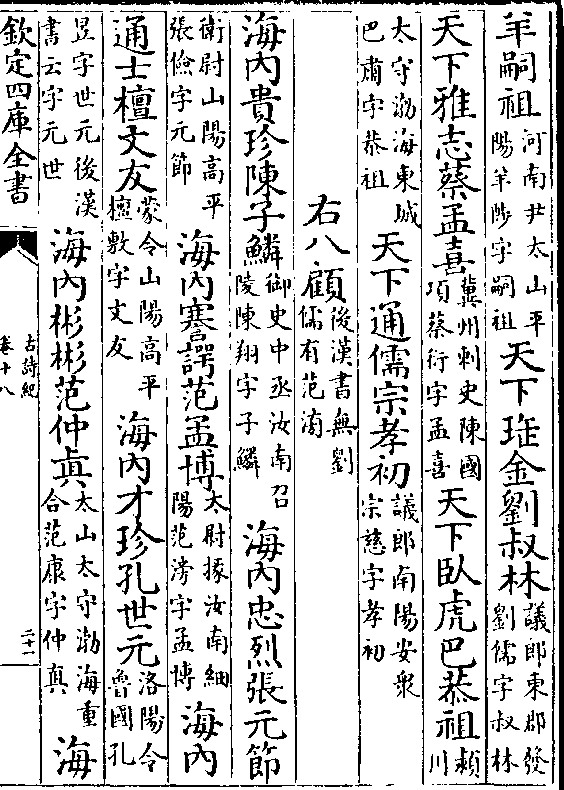 羊嗣祖河南尹太山平陽羊陟字嗣祖 天下珤金劉叔林議郎東郡發劉儒字叔林
天下雅志蔡孟喜冀州刺史陳國項蔡衍字孟喜 天下臥虎巴恭祖潁川
太守渤海東城巴肅字恭祖 天下通儒宗孝初議郎南陽安衆宗慈字孝初
右八顧後漢書無劉儒有范滂
海內貴珍陳子鱗御史中丞汝南召陵陳翔字子鱗 海內忠烈張元節
衛尉山陽高平張儉字元節 海內謇諤范孟博太尉掾汝南細陽范滂字孟博 海內
通士檀文友蒙令山陽高平檀敷字文友 海內才珍孔世元洛陽令魯國孔
昱字世元後漢書云字元世 海內彬彬范仲眞太山太守渤海重合范康字仲眞 海
欽定四庫全書
古詩紀
卷十八
二十一